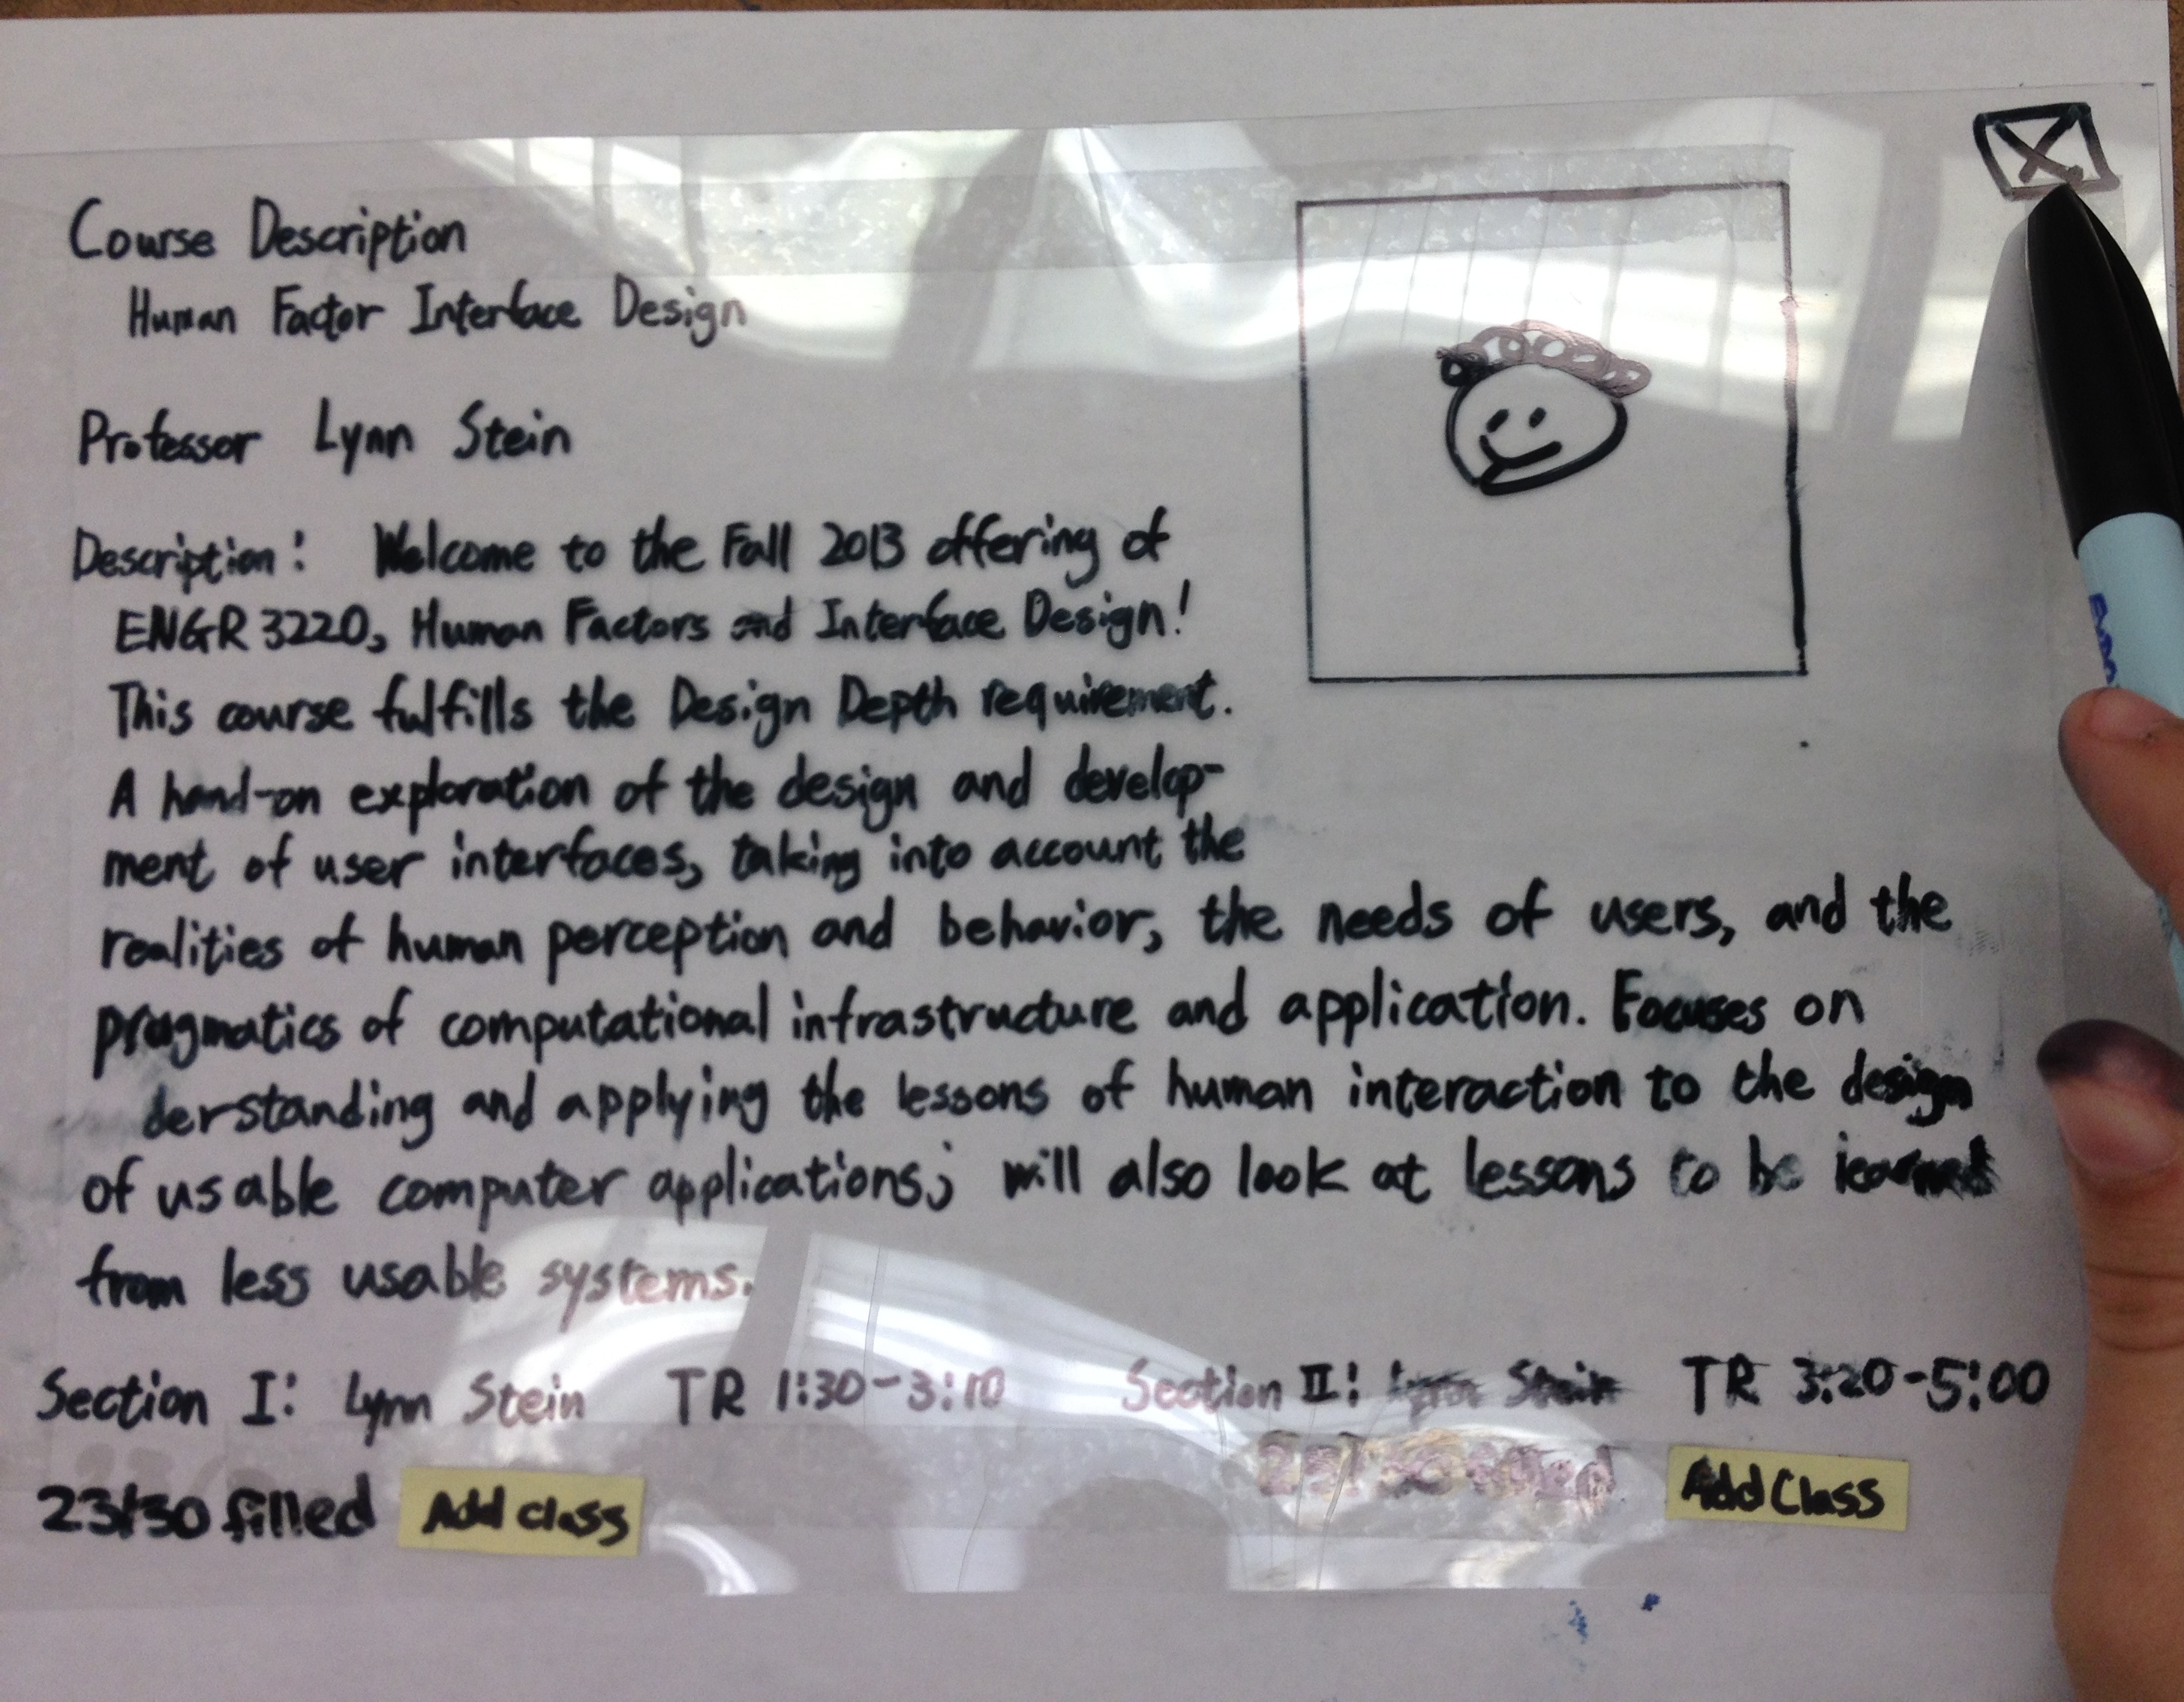 Course Description
Human Factor Interface Design
Professor Lynn Stein
Description: Welcome to the Fall 2013 offering of
ENGR 3220, Human Factors and Interface Design!
This course fulfills the Design Depth requirement.
A hand-on exploration of the design and develop-
ment of user interfaces, taking into account the
realities of human perception and behavior, the needs of users, and the
pragmatics of computational infrastructure and application. Focuses on
derstanding and applying the lessons of human interaction to the design
of usable computer applications; will also look at lessons to be learned
from less usable systems.
Section I: Lynn Stein TR 1:30-3:10 Section II: Lynn Stein TR 3:20-5:00
23/30 filled Add class Add Class
X